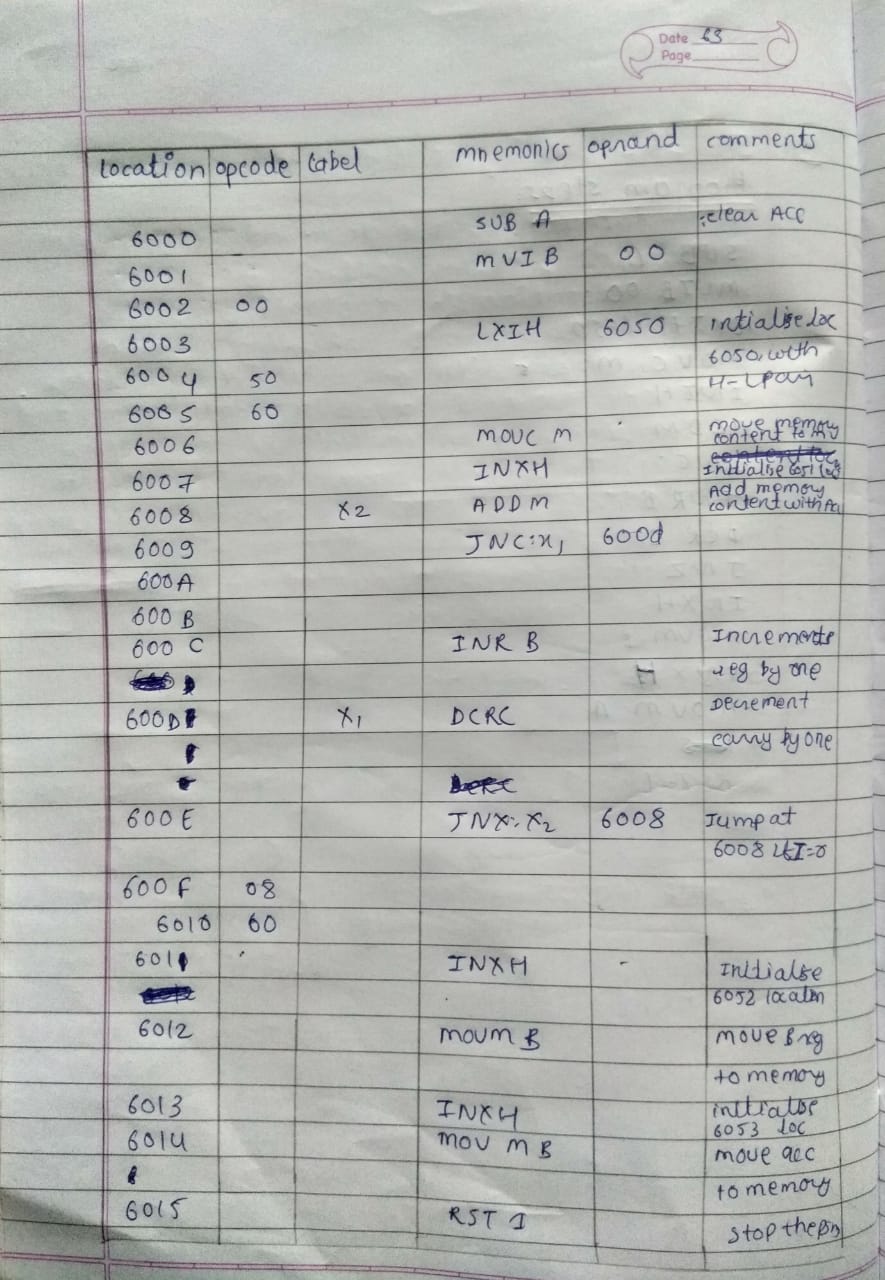 Date 63
Page
location opcode label mnemonics oprand comments
6000 SUB A ;clear ACC
6001 MVI B 00
6002 00
6003 LXIH 6050 intialise loc
6004 50 6050, with
6005 60 H-L pair
6006 MOVC M move memory
content to
6007 INXH Initialise 6051 loc
6008 X2 ADDM Add memory
content with Acc
6009 JNC:x1 600d
600A
600B
600C INR B Increments
reg by one
600D X1 DCRC Decrement
carry by one
600E JNX:X2 6008 Jump at
6008
600F 08
6010 60
6011 INXH Initialse
6052 locatin
6012 MOVM B move B reg
to memory
6013 INXH initialse
6053 loc
6014 MOV M B move acc
to memory
6015 RST 1 stop the